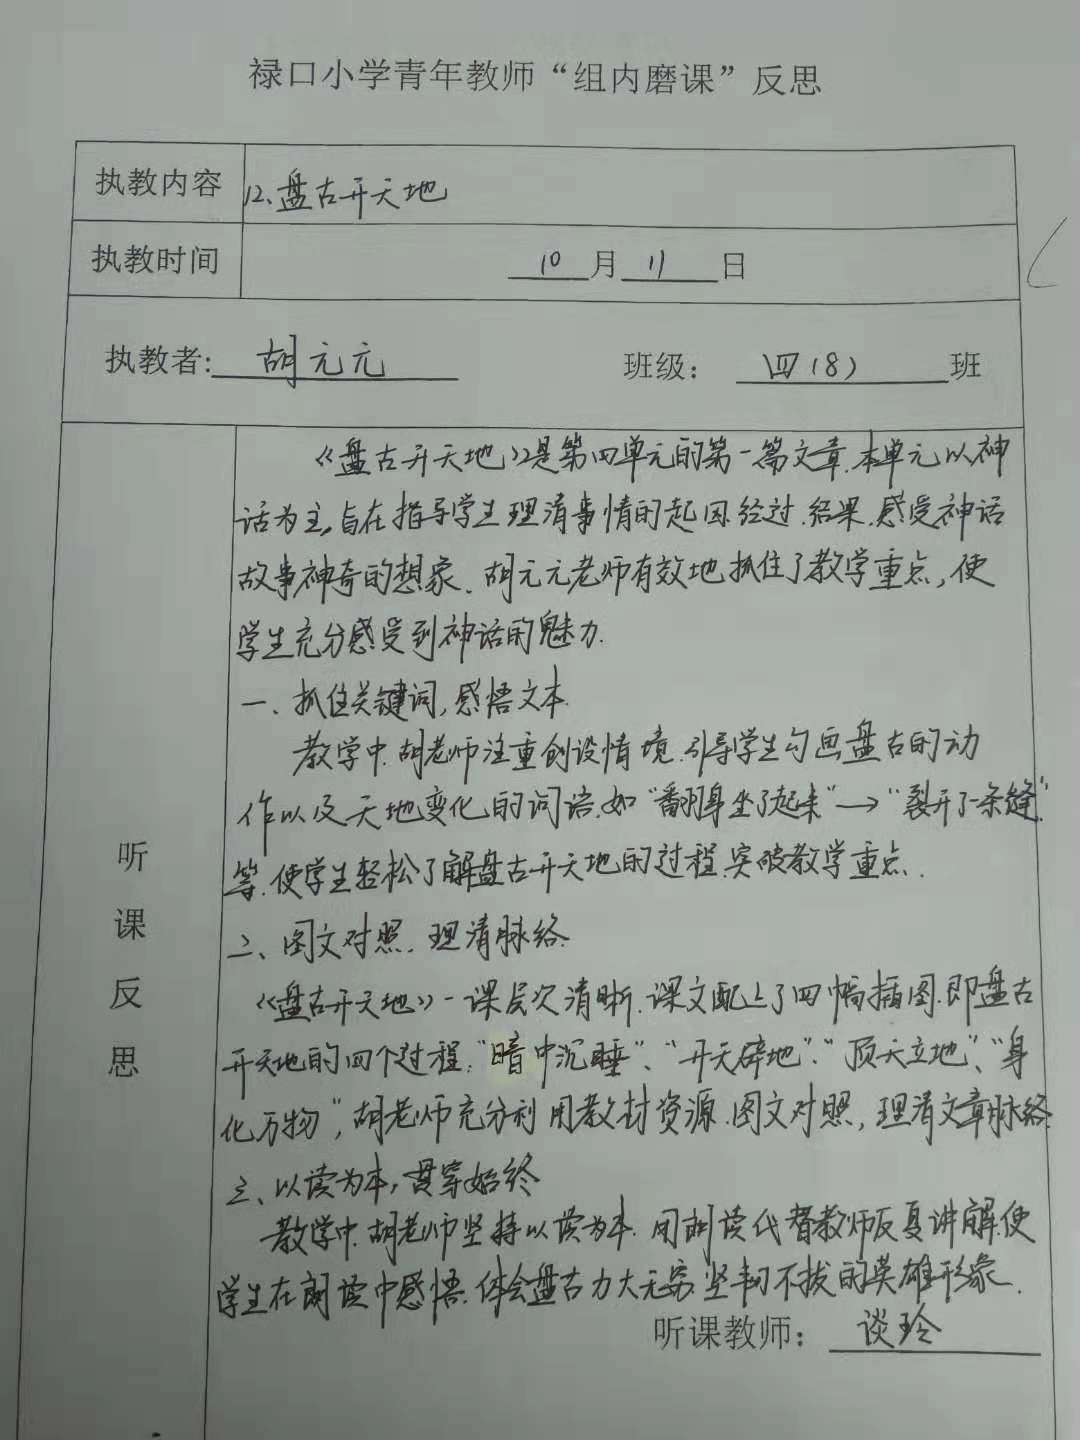 禄口小学青年教师“组内磨课”反思
执教内容 12、盘古开天地
执教时间 10月11日
执教者: 胡元元 班级: 四(8)班
听课反思
《盘古开天地》是第四单元的第一篇文章.本单元以神
话为主,旨在指导学生理清事情的起因.经过.结果.感受神话
故事神奇的想象.胡元元老师有效地抓住了教学重点,使
学生充分感受到神话的魅力.
一、抓住关键词,感悟文本.
教学中.胡老师注重创设情境.引导学生勾画盘古的动
作以及天地变化的词语.如“翻身坐了起来”→“裂开了一条缝”
等.使学生轻松了解盘古开天地的过程.突破教学重点.
二、图文对照.理清脉络.
《盘古开天地》一课层次清晰.课文配上了四幅插图.即盘古
开天地的四个过程:“暗中沉睡”、“开天辟地”、“顶天立地”、“身
化万物”,胡老师充分利用教材资源.图文对照,理清文章脉络.
三、以读为本,贯穿始终
教学中.胡老师坚持以读为本.用朗读代替教师反复讲解.使
学生在朗读中感悟.体会盘古力大无穷.坚韧不拔的英雄形象.
听课教师: 谈玲